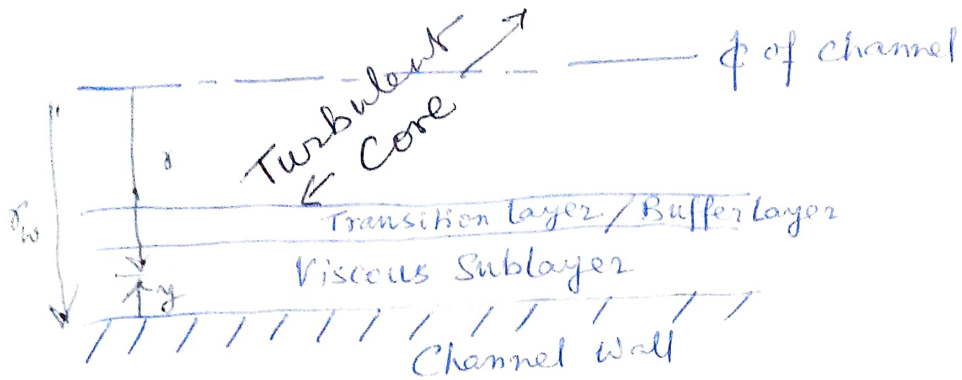 ¢ of channel
Turbulent
Core
r
r_w
Transition layer / Buffer layer
Viscous Sublayer
y
Channel Wall